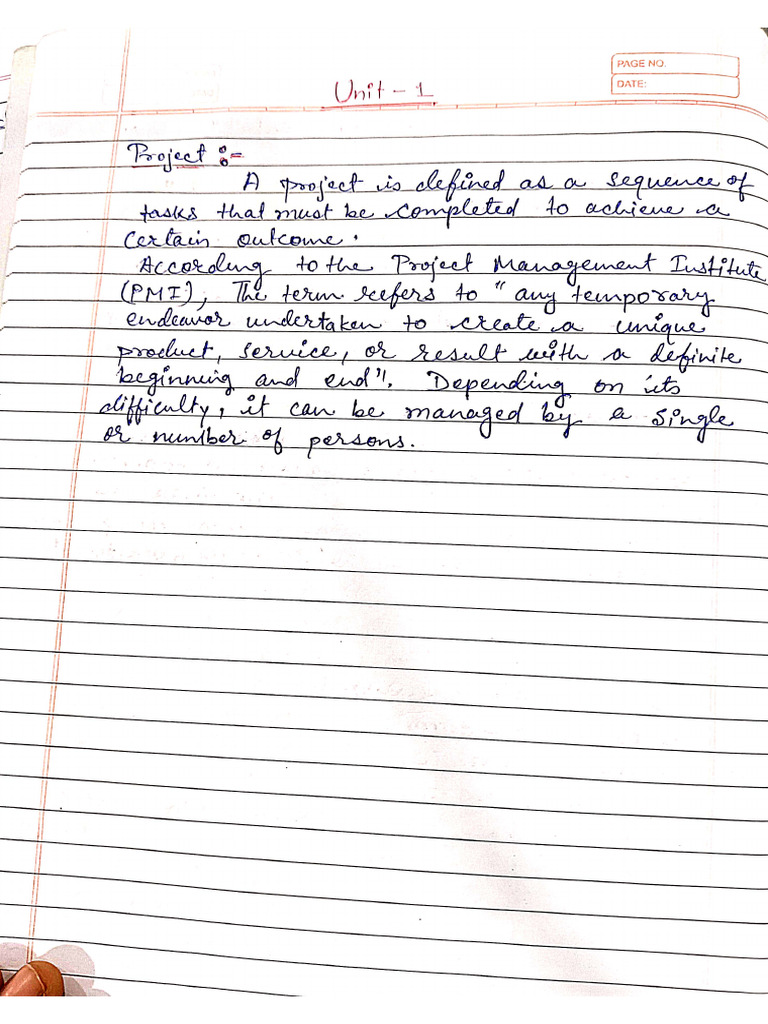 PAGE NO.
DATE:
Unit - 1
Project :-
A project is defined as a sequence of
tasks that must be completed to achieve a
certain outcome.
According to the Project Management Institute
(PMI), The term refers to " any temporary
endeavor undertaken to create a unique
product, service, or result with a definite
beginning and end". Depending on its
difficulty, it can be managed by a single
or number of persons.